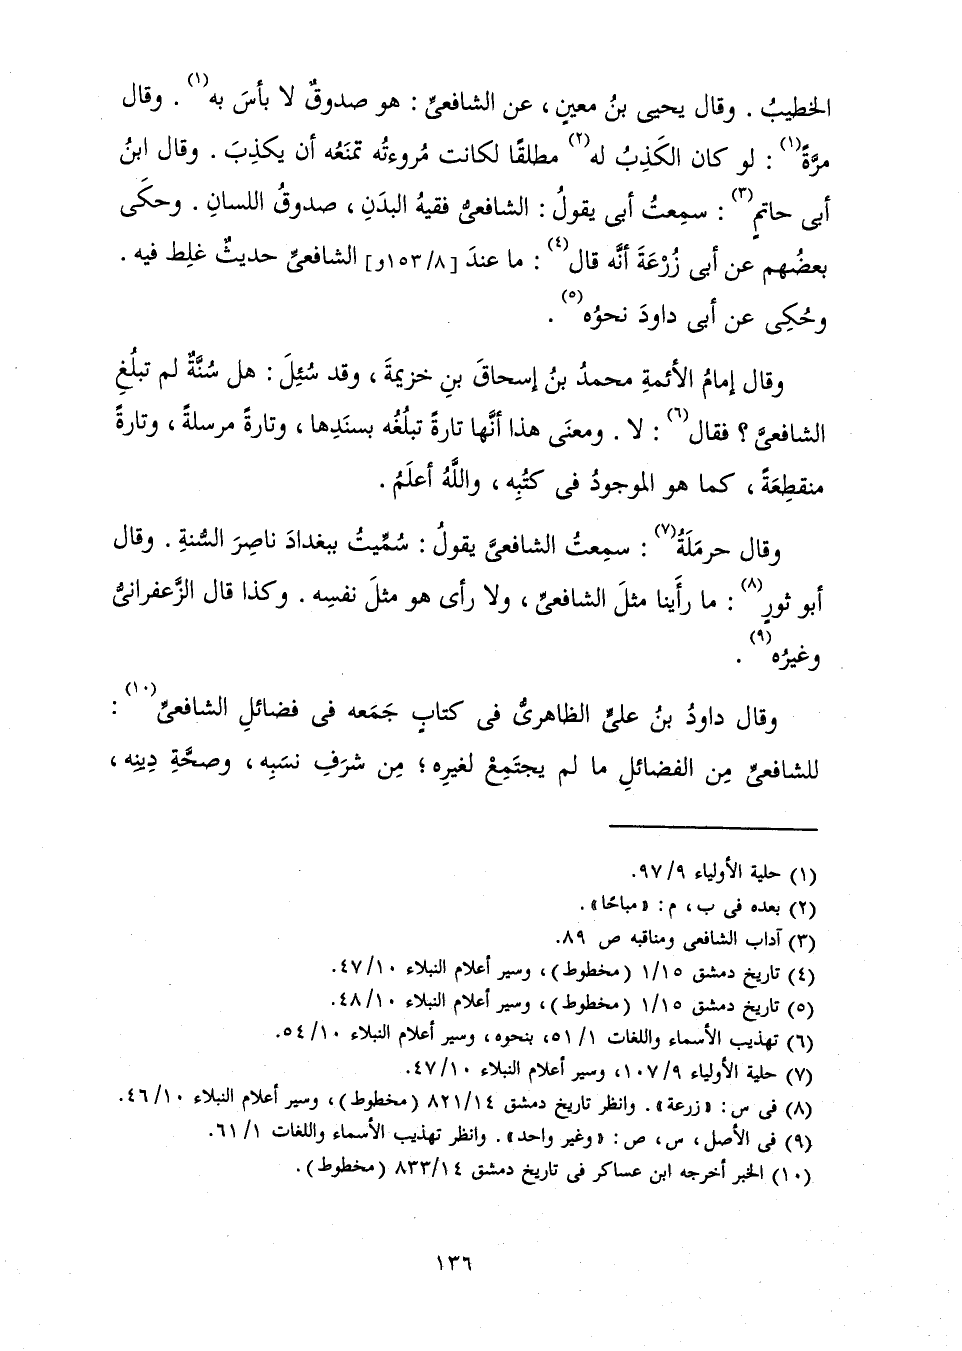 الخطيبُ . وقال يحيى بنُ معينٍ ، عن الشافعىِّ : هو صدوقٌ لا بأسَ به(١) . وقال
مرَّةً(١) : لو كان الكَذِبُ له(٢) مطلقًا لكانت مُروءتُه تمنَعُه أن يكذِبَ . وقال ابنُ
أبى حاتمٍ(٣) : سمِعتُ أبى يقولُ : الشافعىُّ فقيهُ البدَنِ ، صدوقُ اللسانِ . وحكَى
بعضُهم عن أبى زُرْعَةَ أنَّه قال(٤) : ما عندَ [٨/ ١٥٣و] الشافعىِّ حديثٌ غلِط فيه .
وحُكِى عن أبى داودَ نحوُه(٥) .
وقال إمامُ الأئمةِ محمدُ بنُ إسحاقَ بنِ خزيمةَ ، وقد سُئِلَ : هل سُنَّةٌ لم تبلُغِ
الشافعىَّ ؟ فقال(٦) : لا . ومعنَى هذا أنَّها تارةً تبلُغُه بسنَدِها ، وتارةً مرسلةً ، وتارةً
منقطِعَةً ، كما هو الموجودُ فى كتُبِه ، واللَّهُ أعلَمُ .
وقال حرمَلَةُ(٧) : سمِعتُ الشافعىَّ يقولُ : سُمِّيتُ ببغدادَ ناصِرَ السُّنةِ . وقال
أبو ثورٍ(٨) : ما رأَينا مثلَ الشافعىِّ ، ولا رأى هو مثلَ نفسِه . وكذا قال الزَّعفرانىُّ
وغيرُه(٩) .
وقال داودُ بنُ علىٍّ الظاهرىُّ فى كتابٍ جَمَعه فى فضائلِ الشافعىِّ(١٠) :
للشافعىِّ مِن الفضائلِ ما لم يجتَمِعْ لغيرِه ؛ مِن شرَفِ نسَبِه ، وصحَّةِ دِينِه ،
(١) حلية الأولياء ٩/ ٩٧.
(٢) بعده فى ب ، م : «مباحًا» .
(٣) آداب الشافعى ومناقبه ص ٨٩.
(٤) تاريخ دمشق ١٥/ ١ (مخطوط) ، وسير أعلام النبلاء ١٠/ ٤٧.
(٥) تاريخ دمشق ١٥/ ١ (مخطوط) ، وسير أعلام النبلاء ١٠/ ٤٨.
(٦) تهذيب الأسماء واللغات ١/ ٥١، بنحوه ، وسير أعلام النبلاء ١٠/ ٥٤.
(٧) حلية الأولياء ٩/ ١٠٧، وسير أعلام النبلاء ١٠/ ٤٧.
(٨) فى س : «زرعة» . وانظر تاريخ دمشق ١٤/ ٨٢١ (مخطوط) ، وسير أعلام النبلاء ١٠/ ٤٦.
(٩) فى الأصل ، س ، ص : «وغير واحد» . وانظر تهذيب الأسماء واللغات ١/ ٦١.
(١٠) الخبر أخرجه ابن عساكر فى تاريخ دمشق ١٤/ ٨٣٣ (مخطوط) .
١٣٦